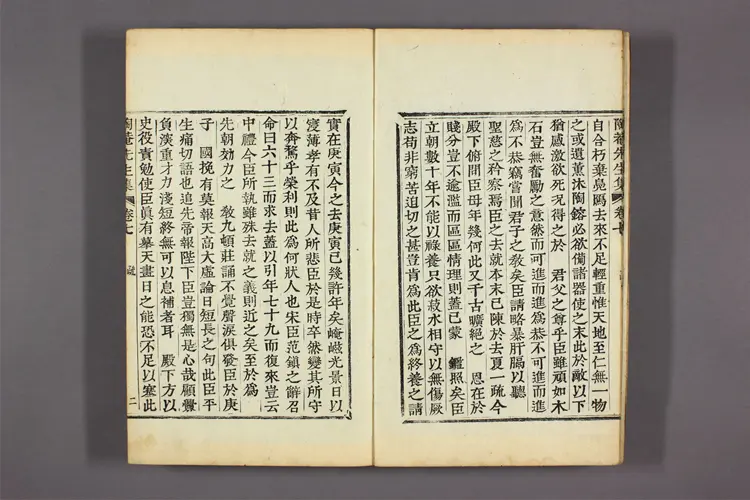 陶菴先生集 卷七
自合朽棄鳧鷗去來不足輕重惟天地至仁無一物
之或遺薰沐陶鎔必欲備諸器使之末此於敵以下
猶感激欲死况得之於 君父之尊乎臣雖頑如木
石豈無奮勵之意然而可進而進爲恭不可進而進
爲不恭竊嘗聞君子之敎矣臣請略暴肝膈以聽
聖慈之矜察焉臣之去就本末已陳於去夏一疏今
殿下俯問臣母年幾何此又千古曠絶之 恩在於
賤分豈不逾濫而區區情理則蓋已蒙 鑑照矣臣
立朝數十年不能以祿養只欲菽水相守以無傷厥
志苟非窮苦迫切之甚豈肯爲此臣之爲終養之請
實在庚寅今之去庚寅已幾許年矣崦嵫光景日以
寖薄孝有不及昔人所悲臣於是時卒然變其所守
以奔騖乎榮利則此爲何狀人也宋臣范鎭之辭召
命曰六十三而求去蓋以引年七十九而復來豈云
中禮今臣所執雖殊去就之義則近之矣至於爲
先朝効力之 敎九頓莊誦不覺聲淚俱發臣於庚
子 國挽有莫報天高大虛論日短長之句此臣平
生痛切語也追先帝報陛下臣豈獨無是心哉顧釁
負深重才力淺短終無可以息補者耳 殿下方以
史役責勉使臣眞有摹天畫日之能恐不足以塞此
陶菴先生集 卷七 疏 二